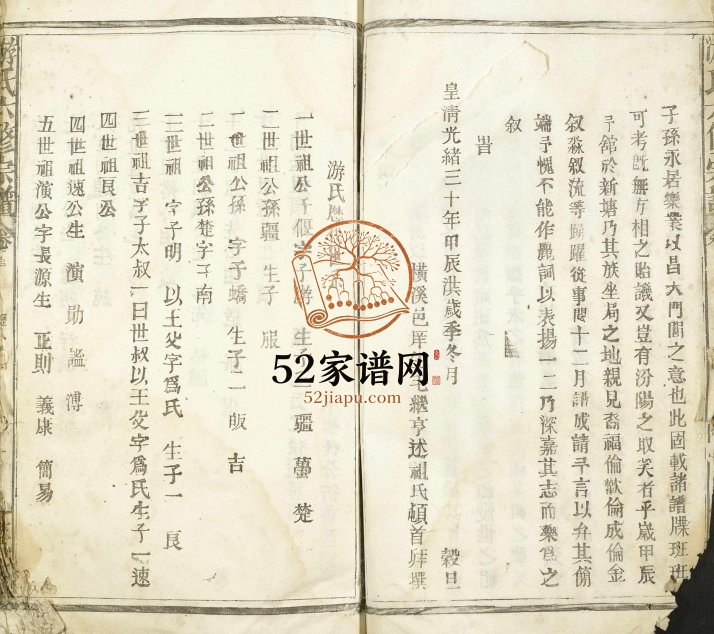 子孫永居樂業以昌大門閭之意也此固載諸譜牒班班
可考既無方相之貽譏又豈有汾陽之取笑者乎歲甲辰
予館於新塘乃其族坐局之地親見裔福倫歡倫成倫金
叙淼叙流等踴躍從事閱十二月譜成請予言以弁其簡
端予愧不能作麗詞以表揚一二乃深嘉其志而樂為之
叙
旹
皇清光緒三十年甲辰洪歲季冬月 穀旦
橫溪邑庠 繼亨述祖氏頓首拜撰
游氏歷 世
一世祖公子偃字子游 生 二疆 蠆 楚
二世祖公孫疆 生子 服
二世祖公孫 字子蟜 生子二 皈 吉
二世祖公孫楚字子南
三世祖 字子明 以王父字為氏 生子一 良
三世祖吉字子太叔一曰世叔以王父字為氏生子一速
四世祖良公
四世祖速公生 演 勛 謐 溥
五世祖演公字長源生 正則 義康 簡易
游氏六修宗譜
52家谱网
52jiapu.com